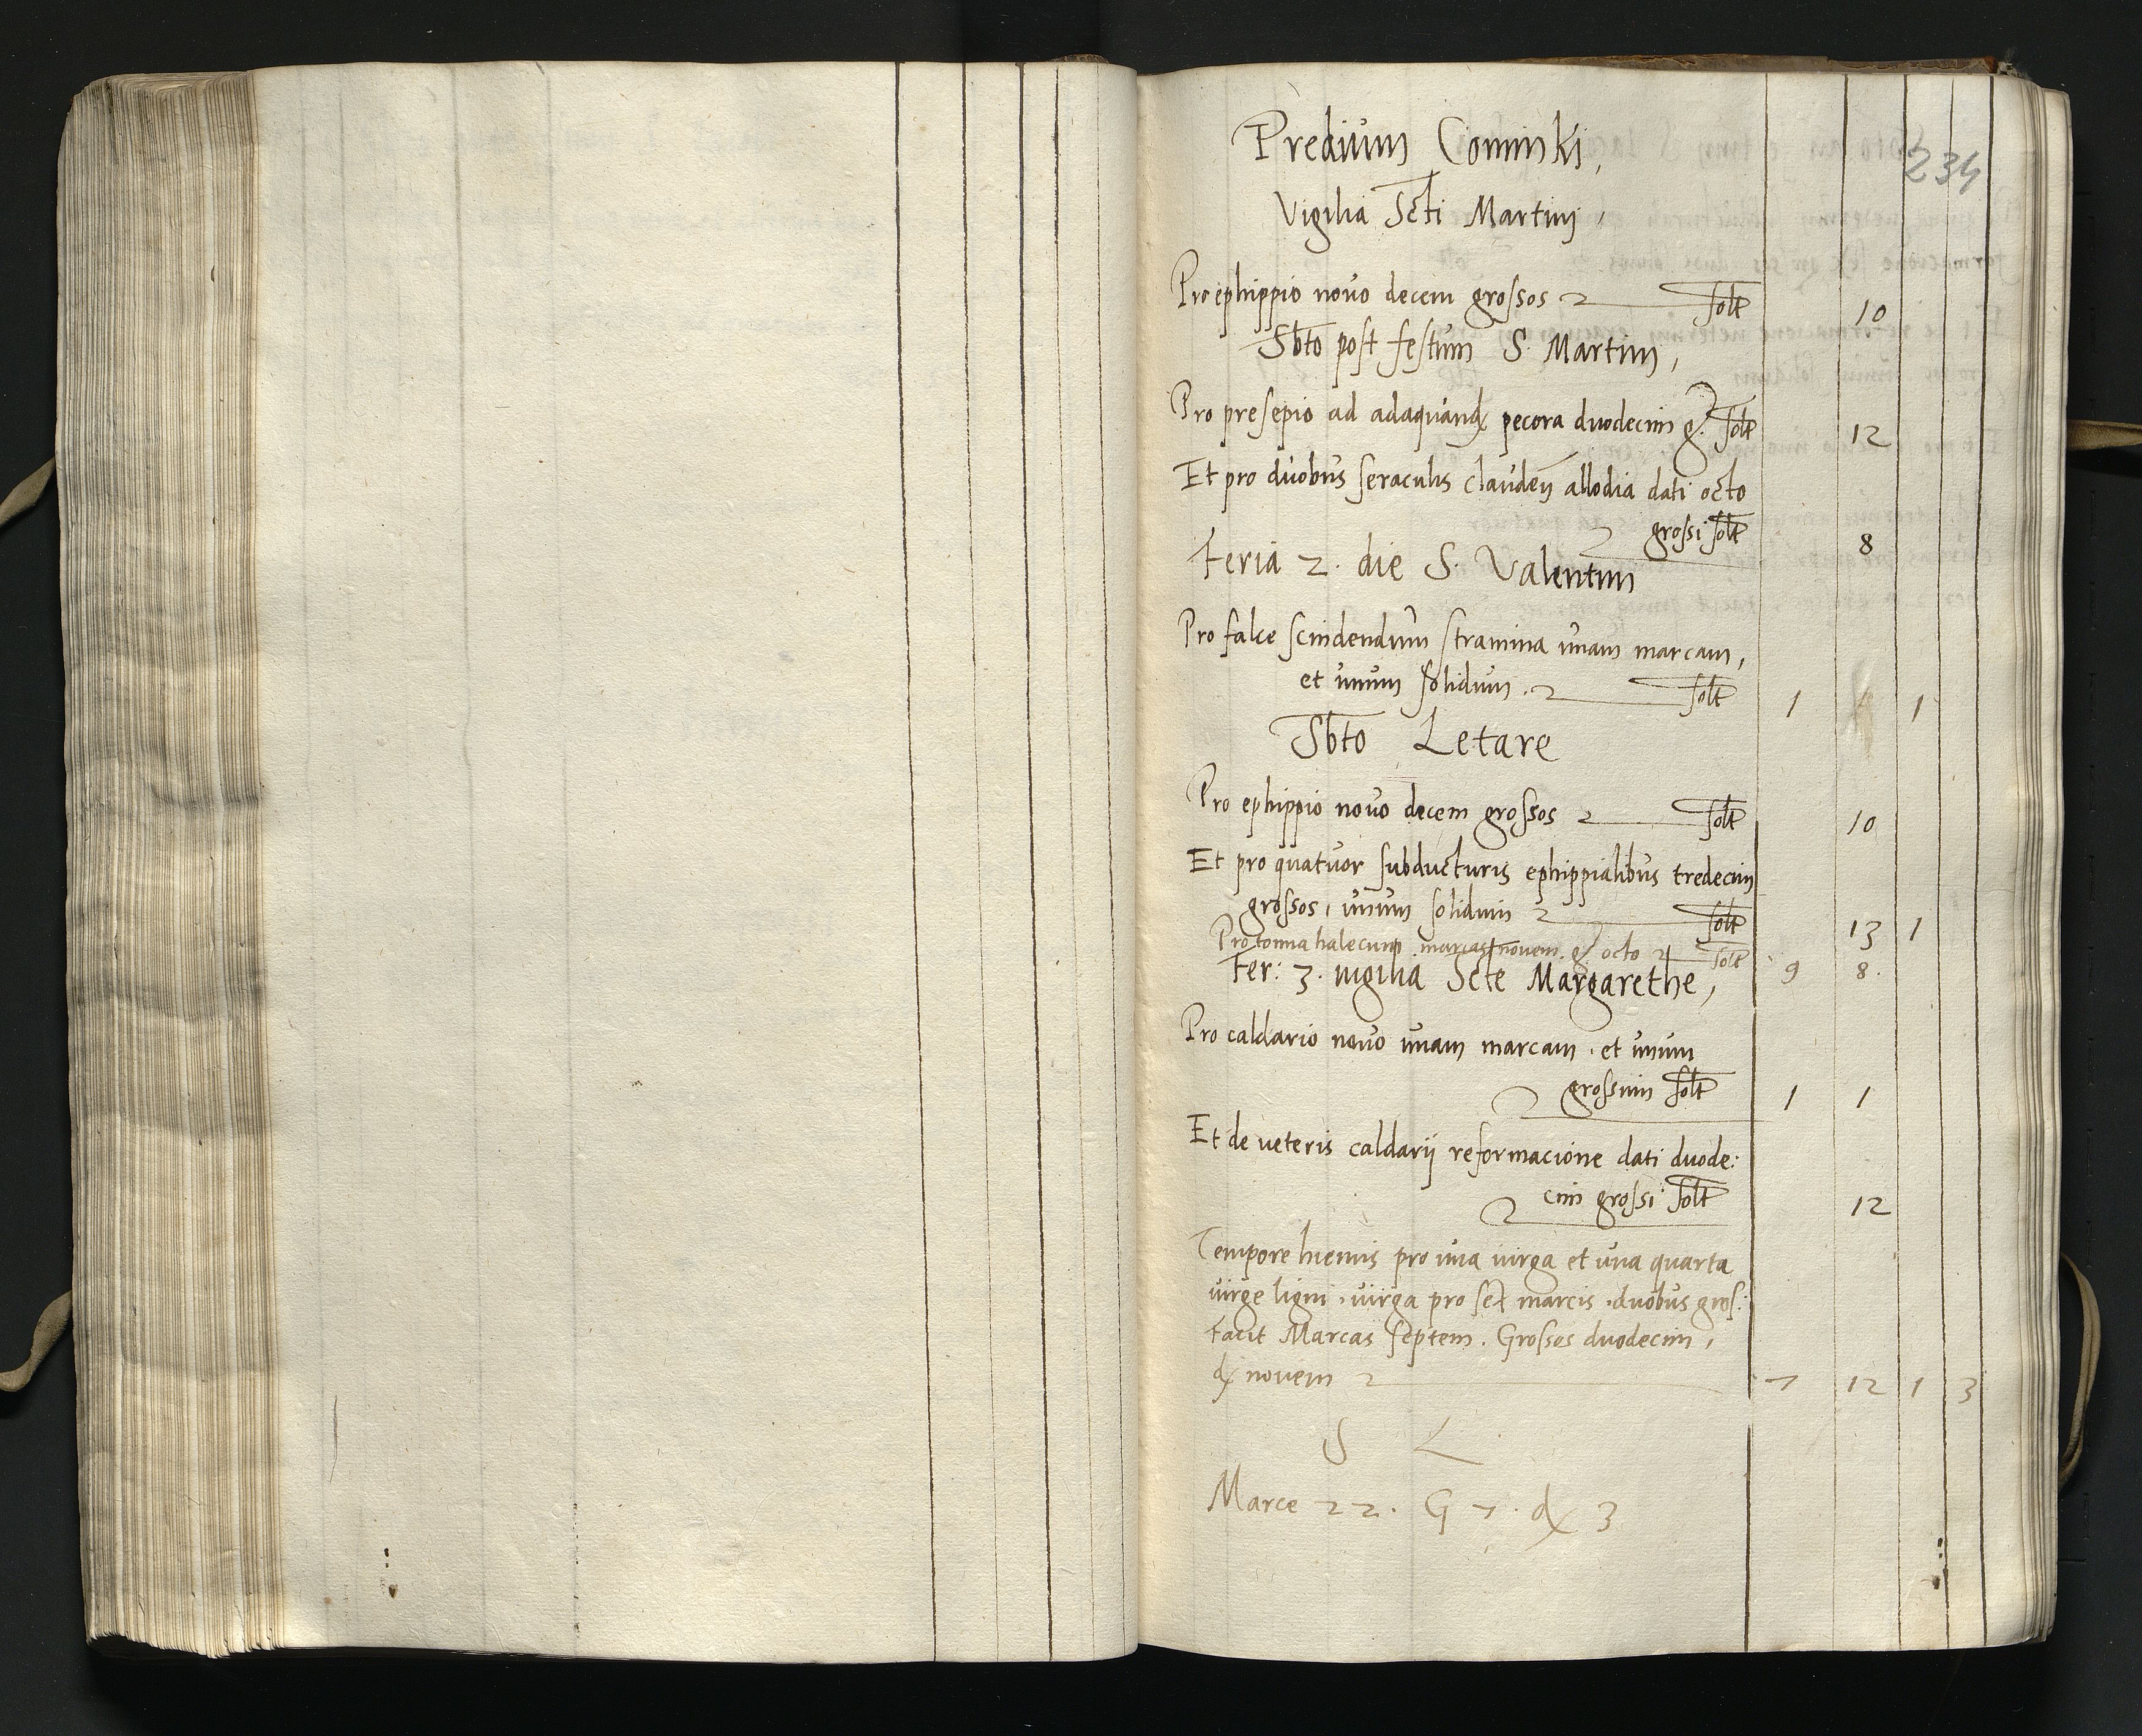 Predium Cominki,
234
Vigilia Scti Martinj,
Pro ephippio novo decem grossos solt 10
Sbto post festum S. Martini,
Pro presepio ad adaquand pecora duodecim g. solt 12
Et pro duobus seraculis clauden allodia dati octo
grossi solt 8
Feria 2. die S. Valentini
Pro falce scindendum stramina unam marcam,
et unum solidum. solt 1 1
Sbto Letare
Pro ephippio novo decem grossos solt 10
Et pro quatuor subducturis ephippialibus tredecim
grossos, unum solidum solt 13 1
Pro tonna halecum marcas novem g. octo solt 9 8.
Fer: 3. vigilia Scte Margarethe,
Pro caldario novo unam marcam. et unum
grossum solt 1 1
Et de veteris caldarij reformacione dati duode:
cim grossi solt 12
Tempore hiemis pro una virga et una quarta
virge ligni. virga pro sex marcis. duobus gros:
facit Marcas septem. Grossos duodecim,
d novem 7 12 1 3
S L
Marce 22. G 7. d 3